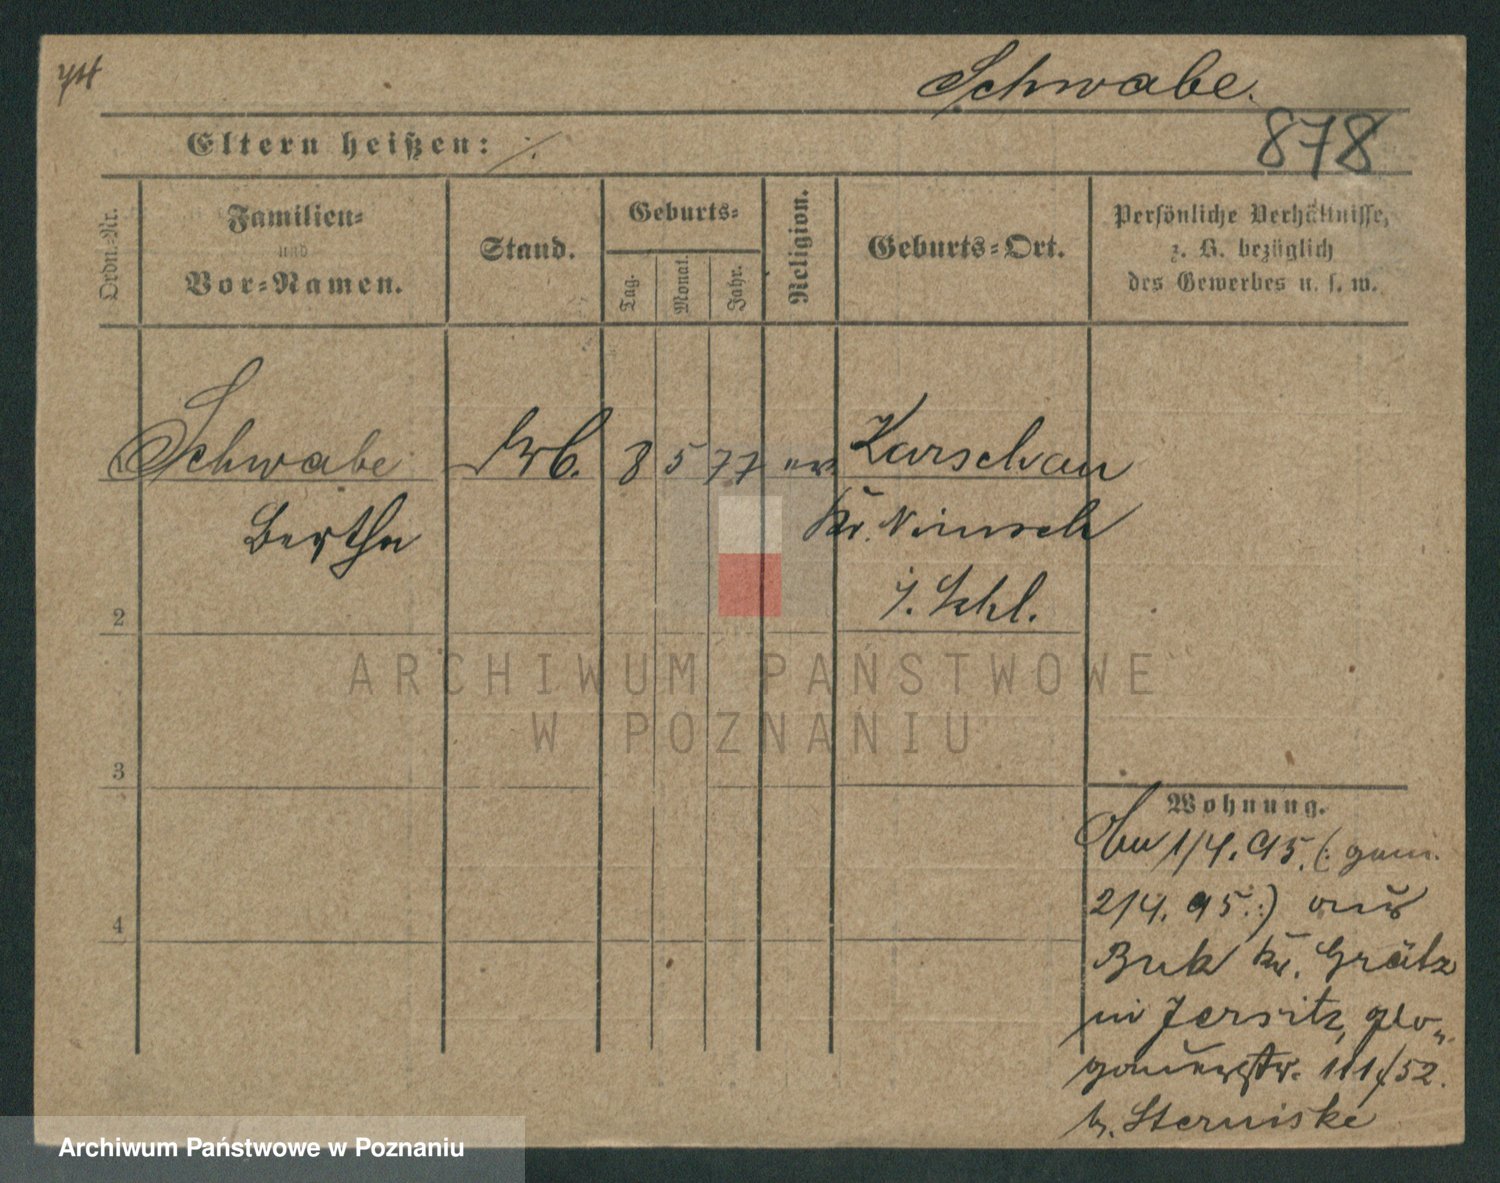 Schwabe.
878
Eltern heißen: ·/·
Ordn.-Nr.
Familien-
und
Vor-Namen.
Stand.
Geburts-
Tag.
Monat.
Jahr.
Religion.
Geburts-Ort.
Persönliche Verhältnisse,
z. B. bezüglich
des Gewerbes u. s. w.
Schwabe
8 5 77 ev Karschau
Bertha
Kr. Nimsch
i. Schl.
2
3
4
ARCHIWUM PAŃSTWOWE
W POZNANIU
Wohnung.
1/4. 95. (: gem.
2/4. 95 :) aus
Buk Kr. Grätz
in Jersitz, Glo-
gauerstr. 111/52.
b. Sterniske
Archiwum Państwowe w Poznaniu